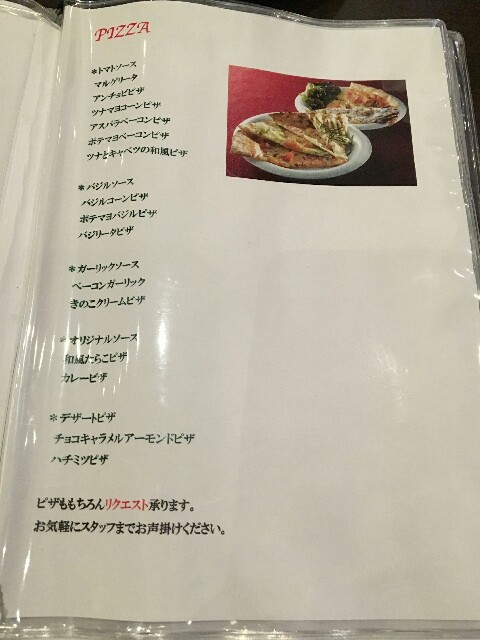 PIZZA
*トマトソース
マルゲリータ
アンチョビピザ
ツナマヨコーンピザ
アスパラベーコンピザ
ポテマヨベーコンピザ
ツナとキャベツの和風ピザ
*バジルソース
バジルコーンピザ
ポテマヨバジルピザ
バジリータピザ
*ガーリックソース
ベーコンガーリック
きのこクリームピザ
*オリジナルソース
和風たらこピザ
カレーピザ
*デザートピザ
チョコキャラメルアーモンドピザ
ハチミツピザ
ピザももちろんリクエスト承ります。
お気軽にスタッフまでお声掛けください。